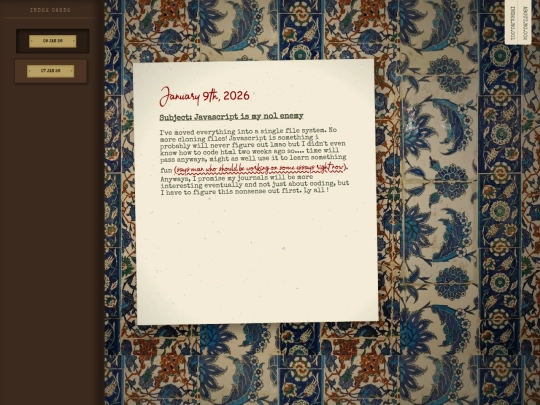 INDEX CARDS
09 JAN 26
07 JAN 26
January 9th, 2026
Subject: Javascript is my no1 enemy
I've moved everything into a single file system. No
more cloning files! Javascript is something i
probably will never figure out lmao but I didn't even
know how to code html two weeks ago so.... time will
pass anyways, might as well use it to learn something
fun (says man who should be working on some essays right now).
Anyways, I promise my journals will be more
interesting eventually and not just about coding, but
I have to figure this nonsense out first. Ly all !